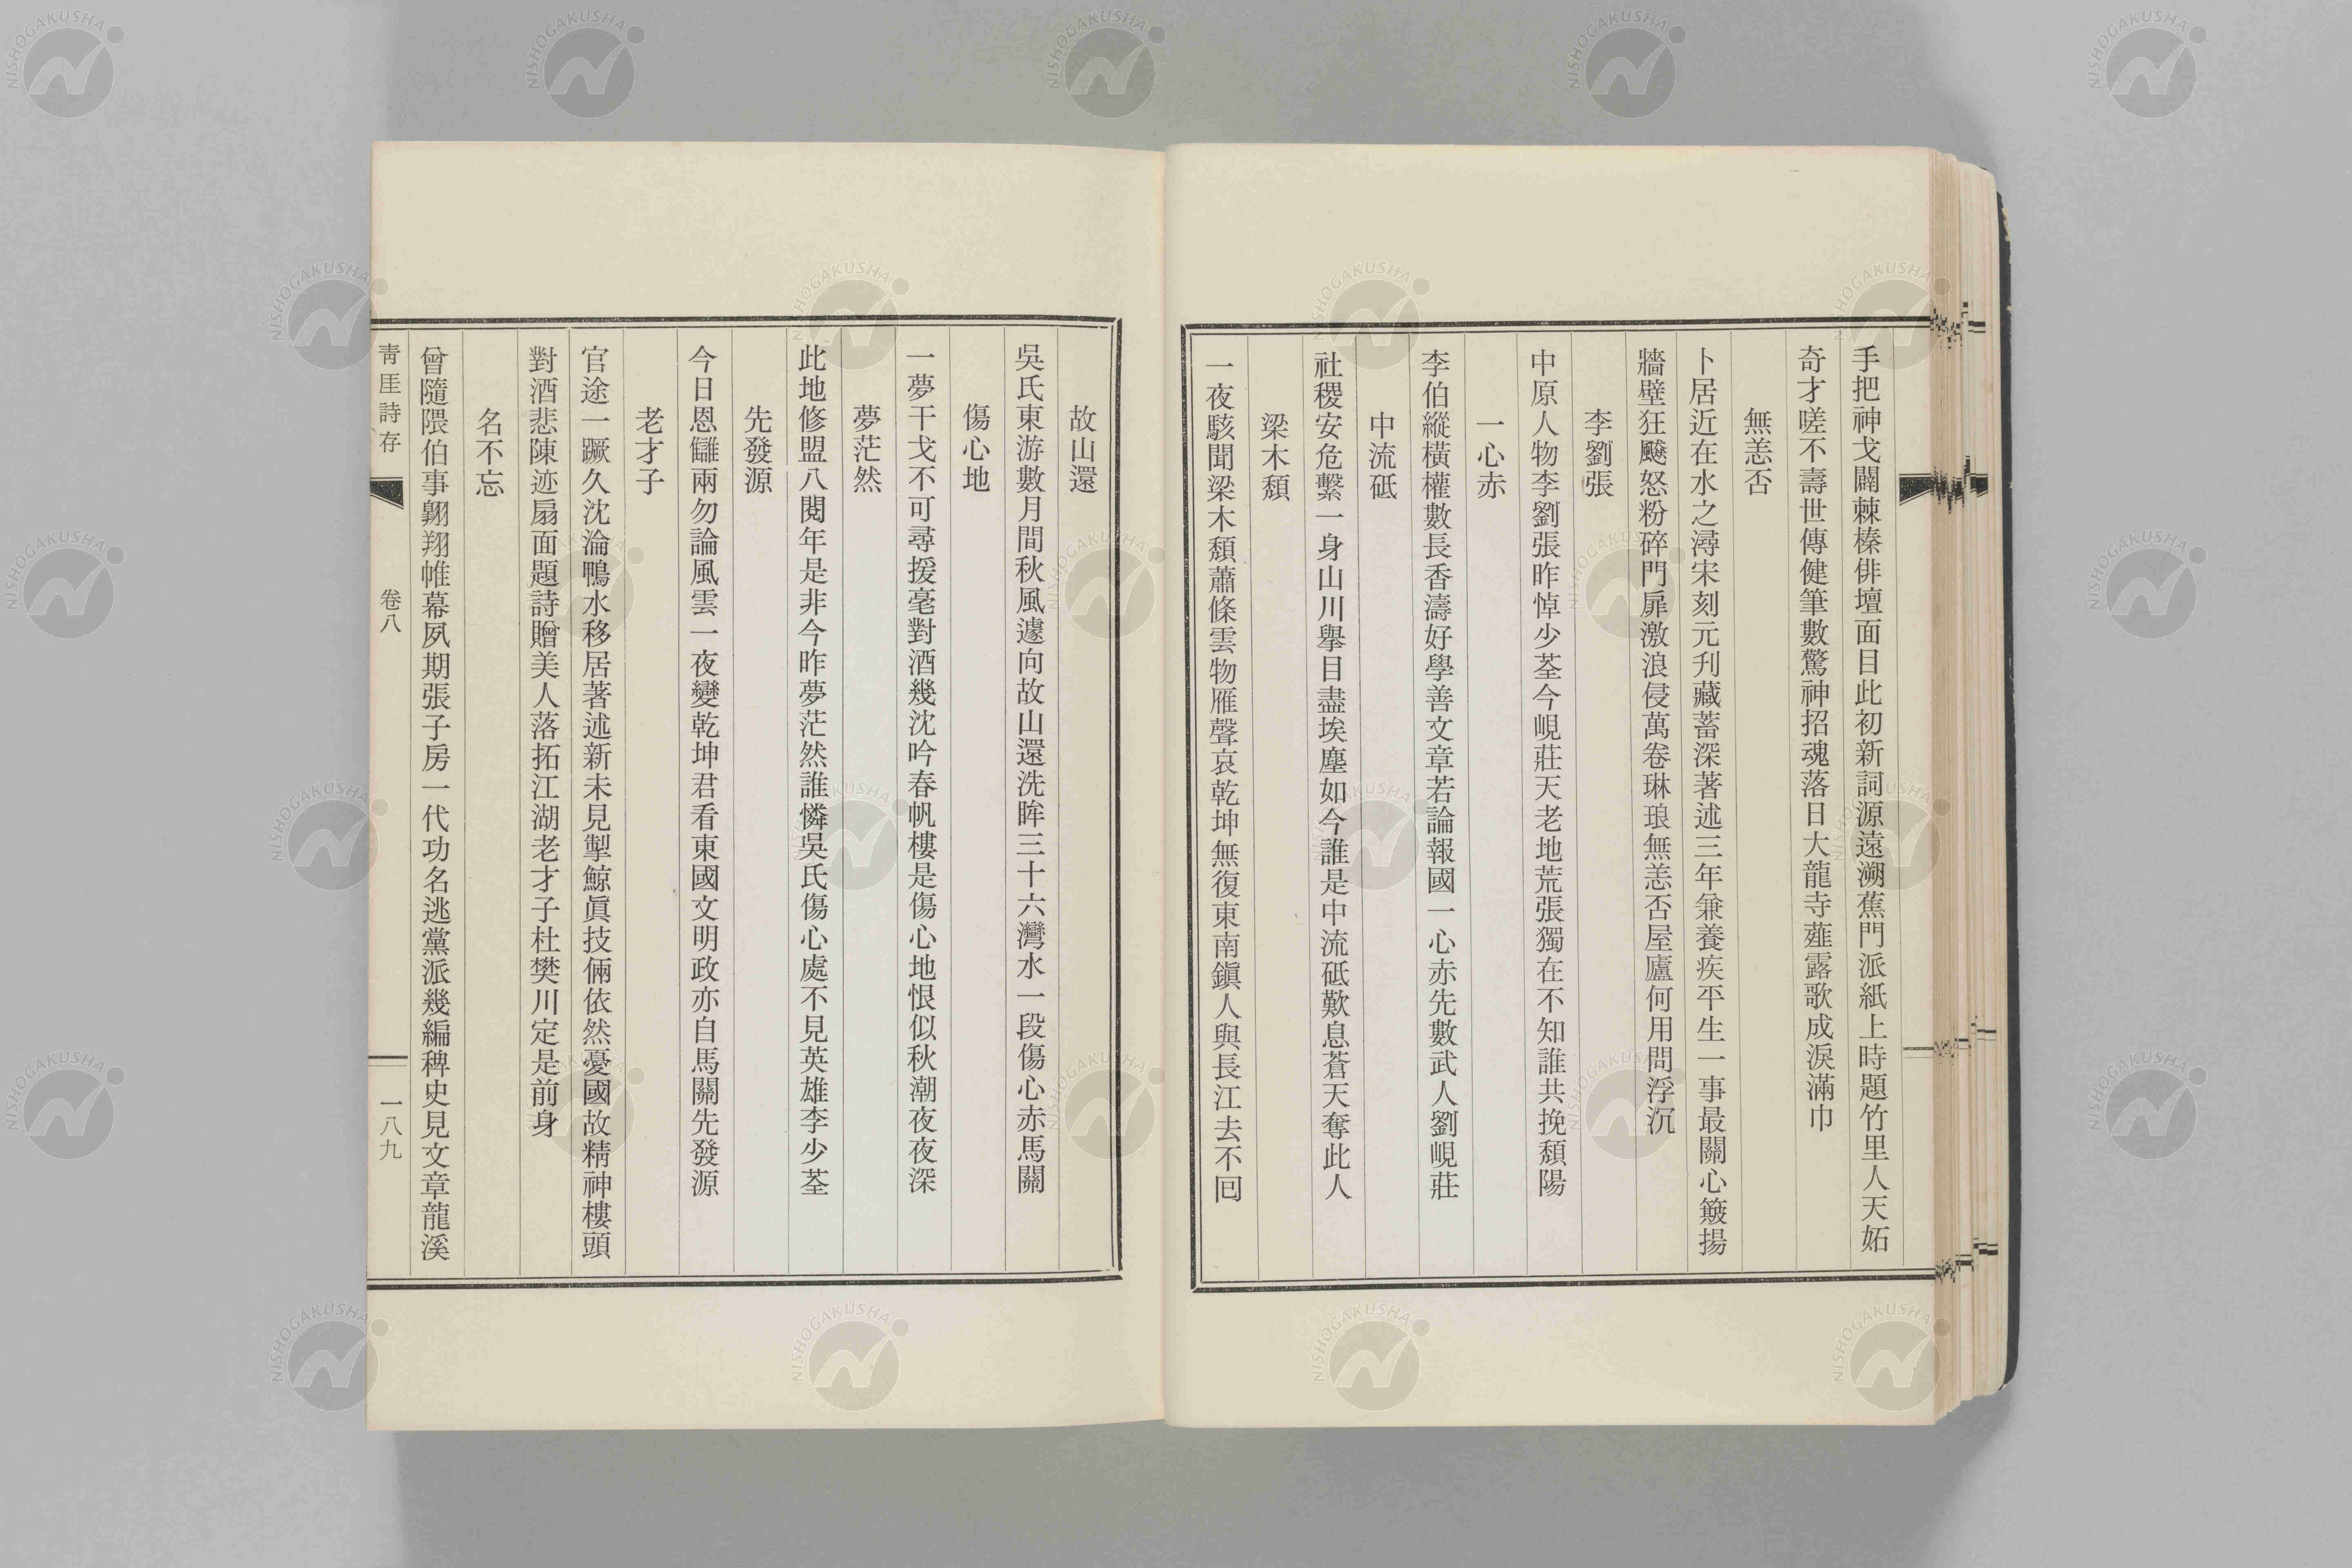 手把神戈闢棘榛俳壇面目此初新詞源遠溯蕉門派紙上時題竹里人天妬
奇才嗟不壽世傳健筆數驚神招魂落日大龍寺薤露歌成淚滿巾
無恙否
卜居近在水之潯宋刻元刋藏蓄深著述三年兼養疾平生一事最關心簸揚
牆壁狂飈怒粉碎門扉激浪侵萬卷琳琅無恙否屋廬何用問浮沉
李劉張
中原人物李劉張昨悼少荃今峴莊天老地荒張獨在不知誰共挽頹陽
一心赤
李伯縱橫權數長香濤好學善文章若論報國一心赤先數武人劉峴莊
中流砥
社稷安危繫一身山川擧目盡埃塵如今誰是中流砥歎息蒼天奪此人
梁木頹
一夜駭聞梁木頹蕭條雲物雁聲哀乾坤無復東南鎭人與長江去不回
故山還
吳氏東游數月間秋風遽向故山還洗眸三十六灣水一段傷心赤馬關
傷心地
一夢干戈不可尋援毫對酒幾沈吟春帆樓是傷心地恨似秋潮夜夜深
夢茫然
此地修盟八閱年是非今昨夢茫然誰憐吳氏傷心處不見英雄李少荃
先發源
今日恩讎兩勿論風雲一夜變乾坤君看東國文明政亦自馬關先發源
老才子
官途一蹶久沈淪鴨水移居著述新未見掣鯨眞技倆依然憂國故精神樓頭
對酒悲陳迹扇面題詩贈美人落拓江湖老才子杜樊川定是前身
名不忘
曾隨隈伯事翺翔帷幕夙期張子房一代功名逃黨派幾編稗史見文章龍溪
靑厓詩存
卷八
一八九
NISHOGAKUSHA